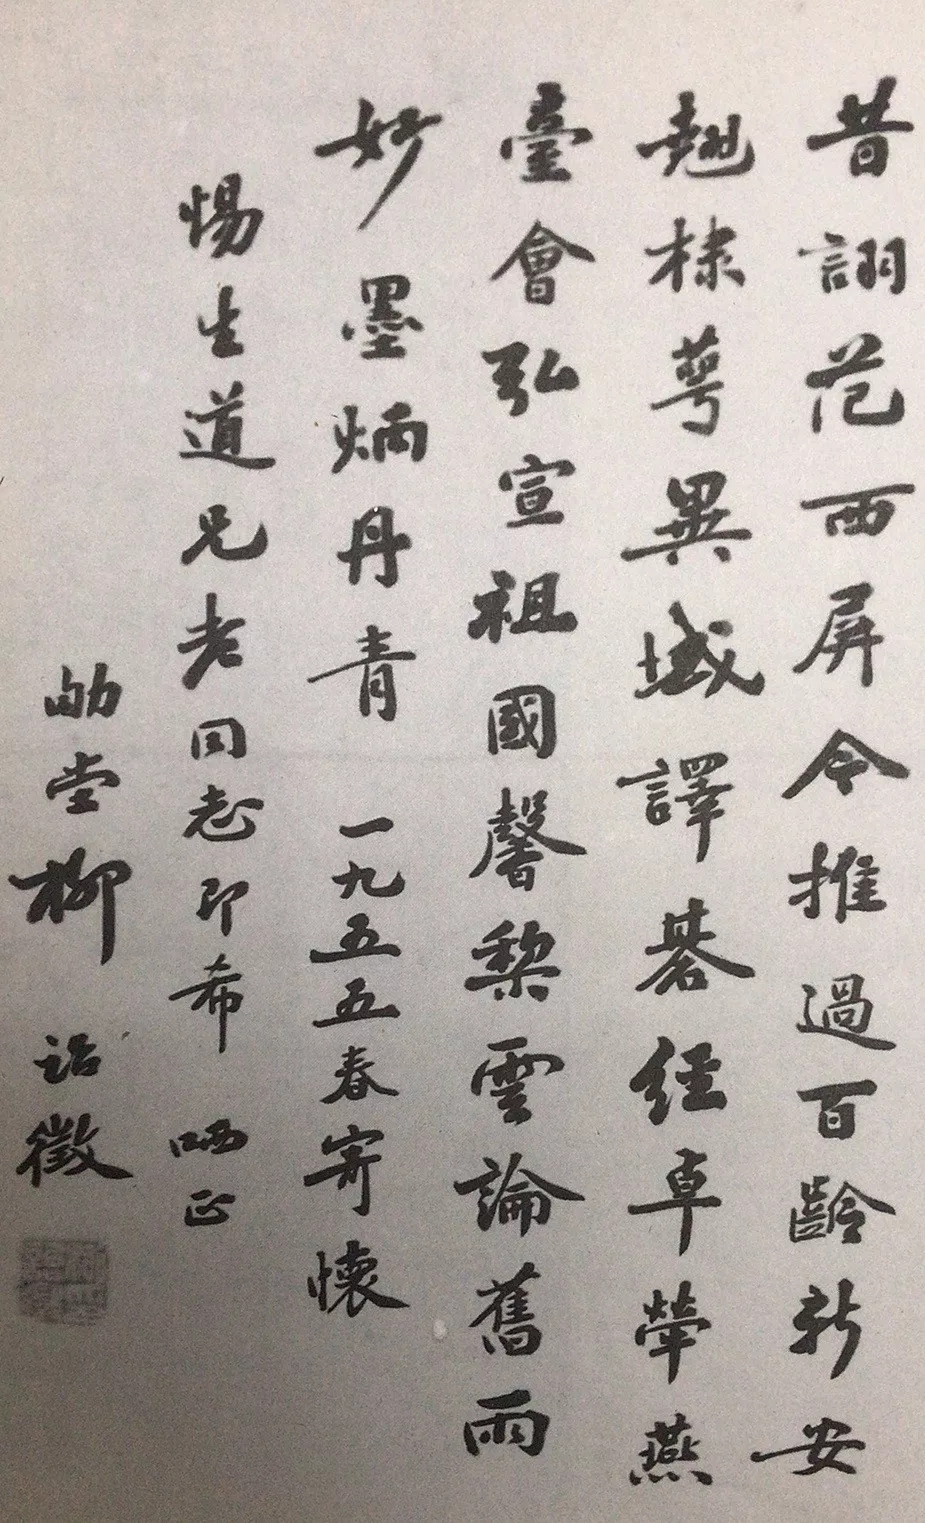 昔詡范西屏今推過百齡新安
翹棣萼異域譯碁經卓犖燕
臺會弘宣祖國馨犂雲論舊雨
妙墨炳丹青 一九五五春寄懷
惕生道兄老同志即希 哂正
劬堂柳詒徵